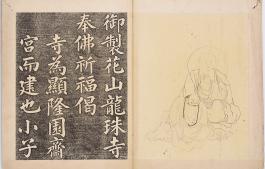 御製花山龍珠寺
奉佛祈福偈
寺為顯隆園齋
宮而建也小子